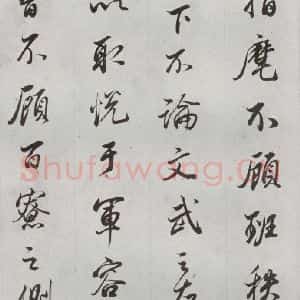 指麾不顧班秩
下不論文武之左
以取悅于軍容
曾不顧百寮之側
Shufawang.cn